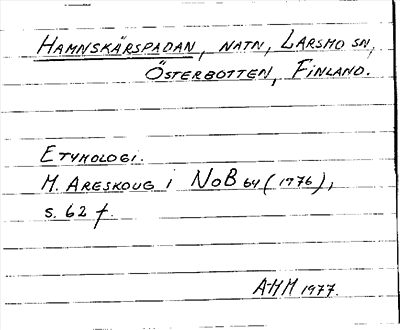 HAMNSKÄRSPADAN, NATN, LARSMO SN,
ÖSTERBOTTEN, FINLAND.
ETYMOLOGI.
M. ARESKOUG i NoB 64 (1976),
s. 62 f.
AHM 1977.